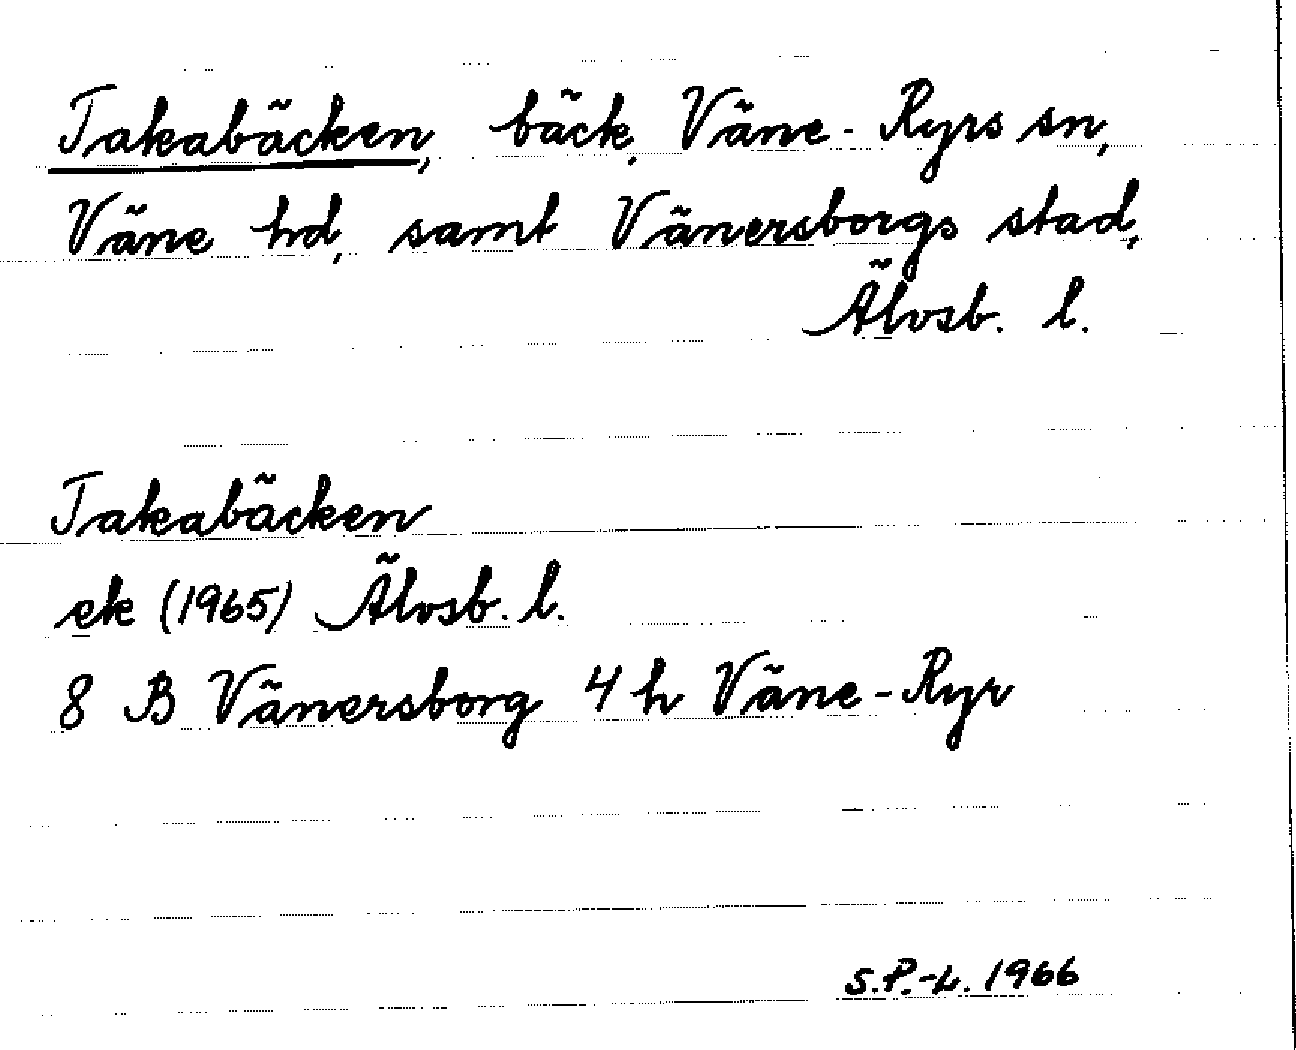 Takabäcken, bäck, Väne-Ryrs sn,
Väne hd, samt Vänersborgs stad,
Älvsb. l.
Takabäcken
ek (1965) Älvsb. l.
8 B Vänersborg 4 h Väne-Ryr
S.P.-L. 1966